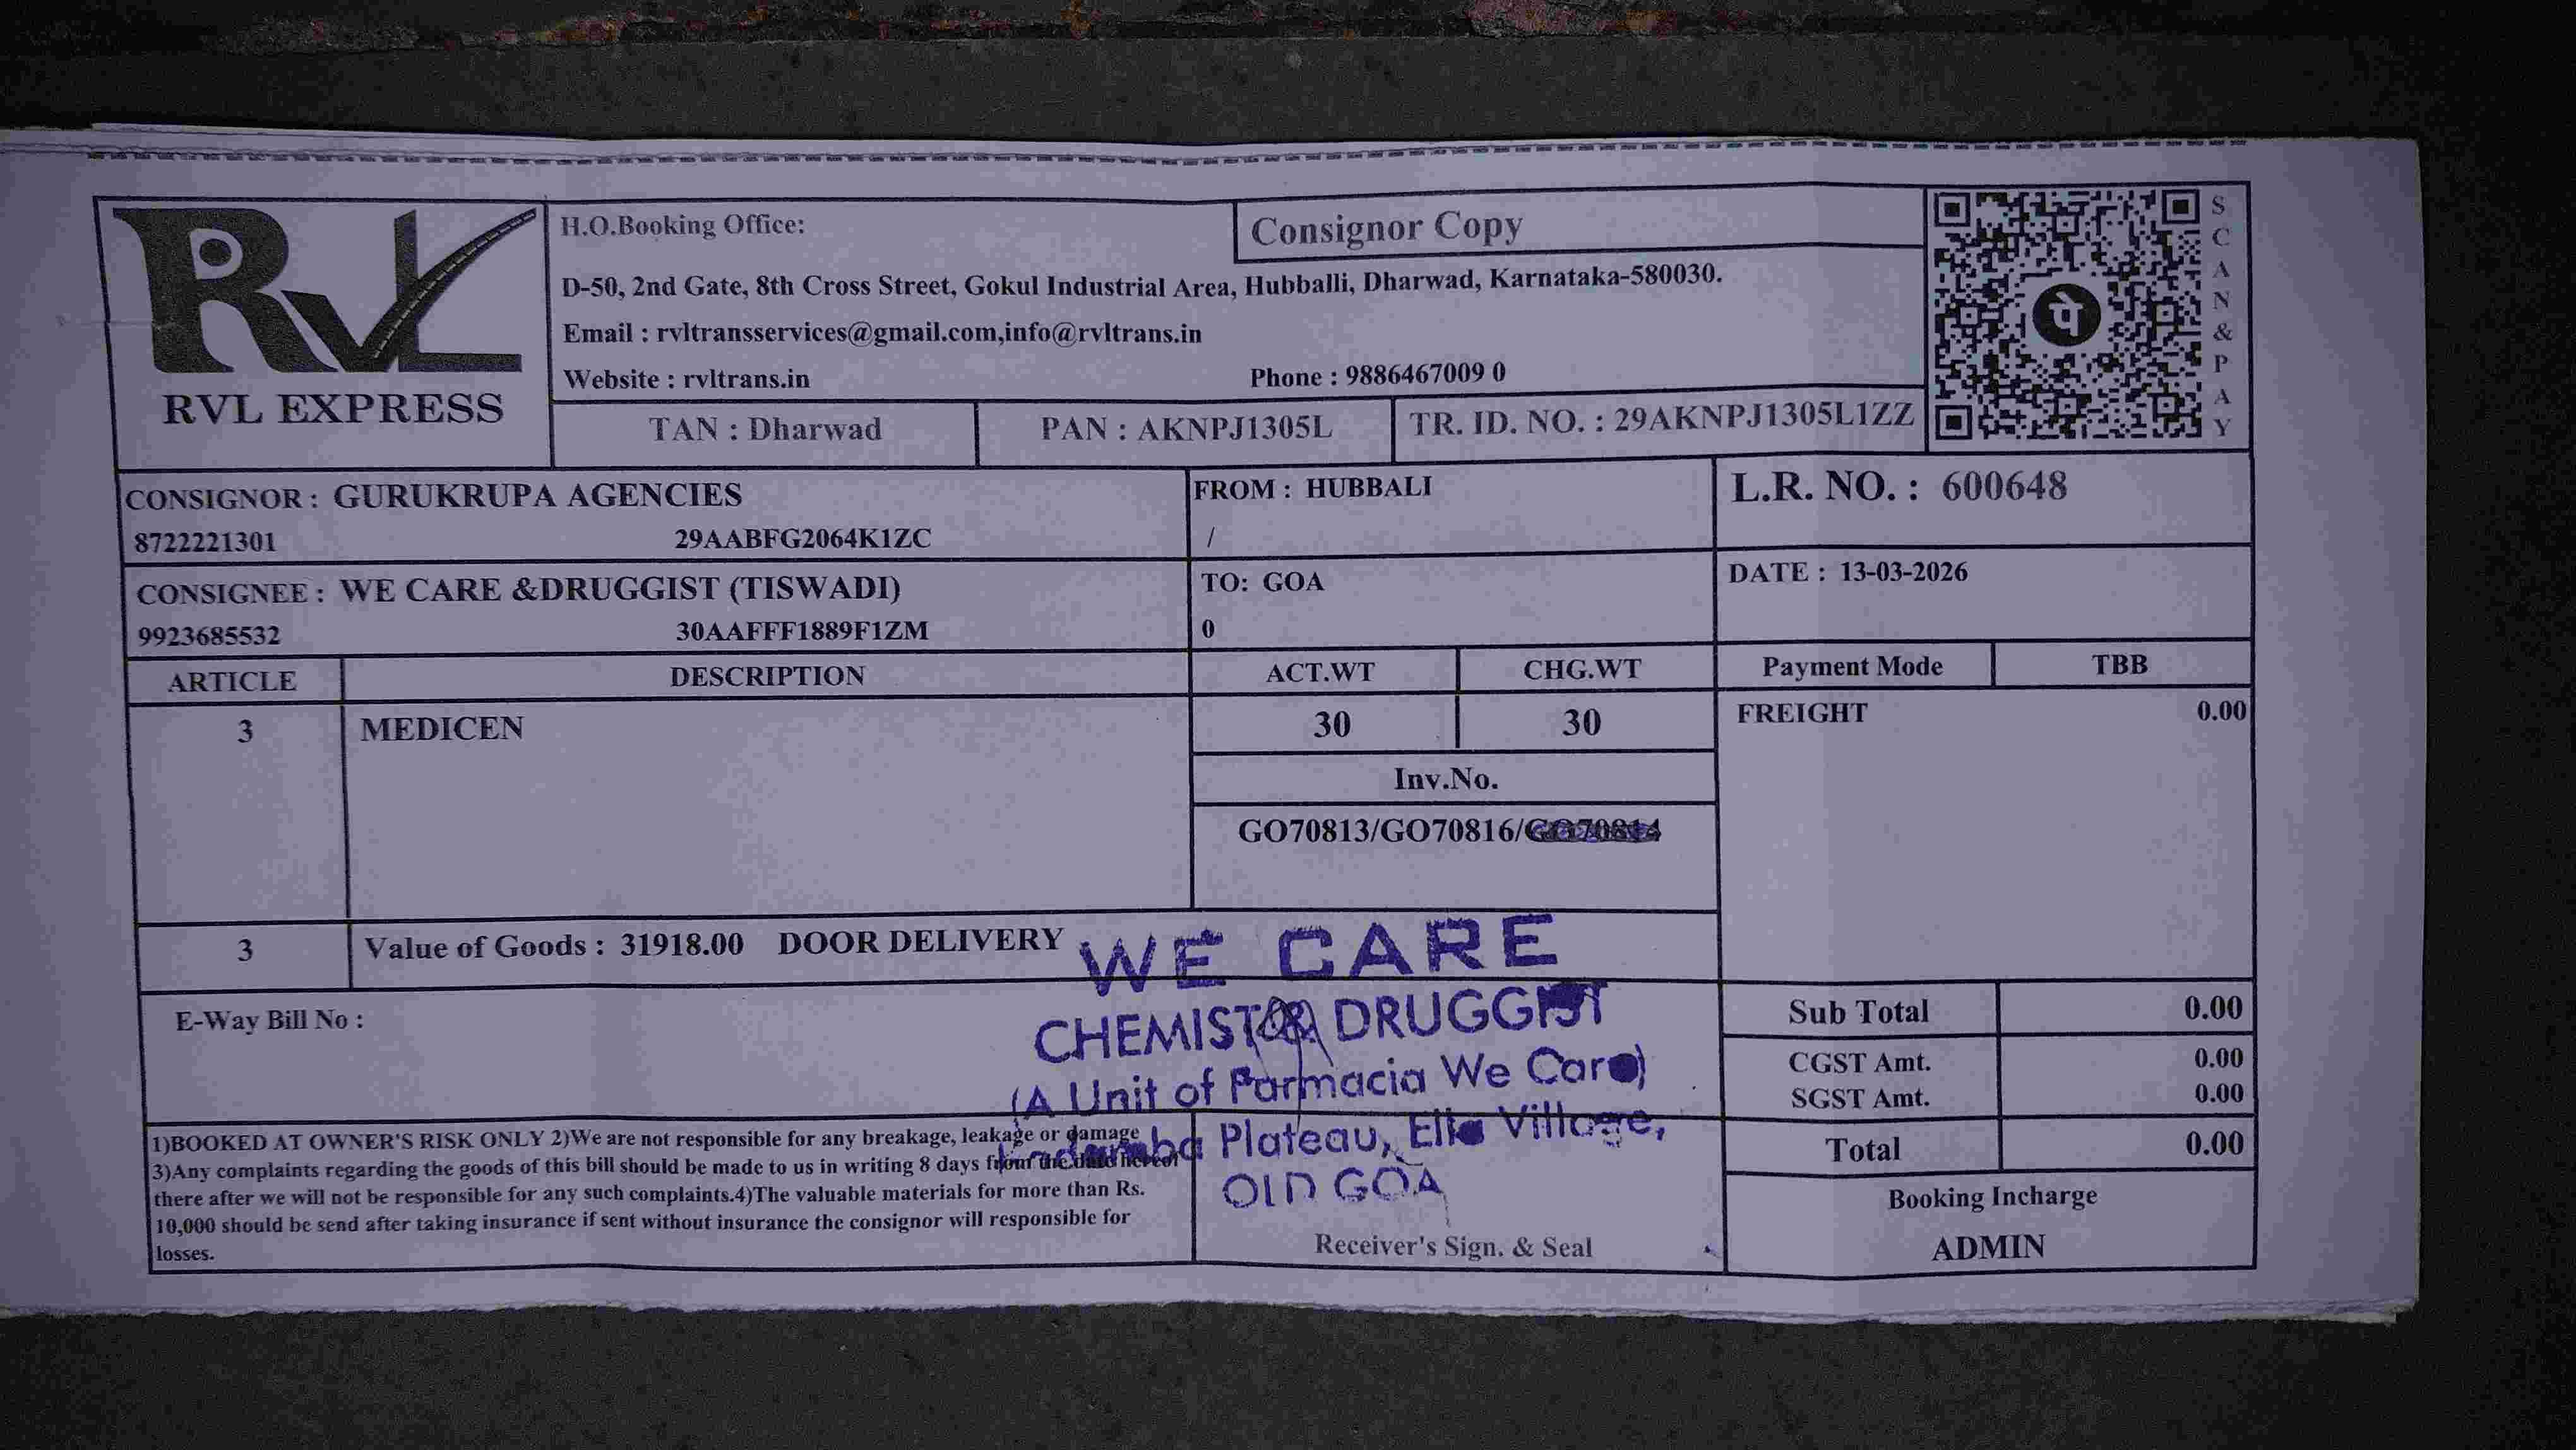 RVL
RVL EXPRESS
H.O.Booking Office:
Consignor Copy
D-50, 2nd Gate, 8th Cross Street, Gokul Industrial Area, Hubballi, Dharwad, Karnataka-580030.
Email : rvltransservices@gmail.com,info@rvltrans.in
Website : rvltrans.in Phone : 9886467009 0
TAN : Dharwad PAN : AKNPJ1305L TR. ID. NO. : 29AKNPJ1305L1ZZ
पे
SCAN & PAY
CONSIGNOR : GURUKRUPA AGENCIES
8722221301 29AABFG2064K1ZC
FROM : HUBBALI
/
L.R. NO. : 600648
CONSIGNEE : WE CARE &DRUGGIST (TISWADI)
9923685532 30AAFFF1889F1ZM
TO: GOA
0
DATE : 13-03-2026
ARTICLE DESCRIPTION ACT.WT CHG.WT Payment Mode TBB
3 MEDICEN 30 30 FREIGHT 0.00
Inv.No.
GO70813/GO70816/GO70814
3 Value of Goods : 31918.00 DOOR DELIVERY
E-Way Bill No :
WE CARE
CHEMIST & DRUGGIST
(A Unit of Farmacia We Care)
Kadamba Plateau, Ella Village,
OLD GOA
Sub Total 0.00
CGST Amt. 0.00
SGST Amt. 0.00
Total 0.00
1)BOOKED AT OWNER'S RISK ONLY 2)We are not responsible for any breakage, leakage or damage
3)Any complaints regarding the goods of this bill should be made to us in writing 8 days from the date hereof
there after we will not be responsible for any such complaints.4)The valuable materials for more than Rs.
10,000 should be send after taking insurance if sent without insurance the consignor will responsible for
losses.
Receiver's Sign. & Seal
Booking Incharge
ADMIN